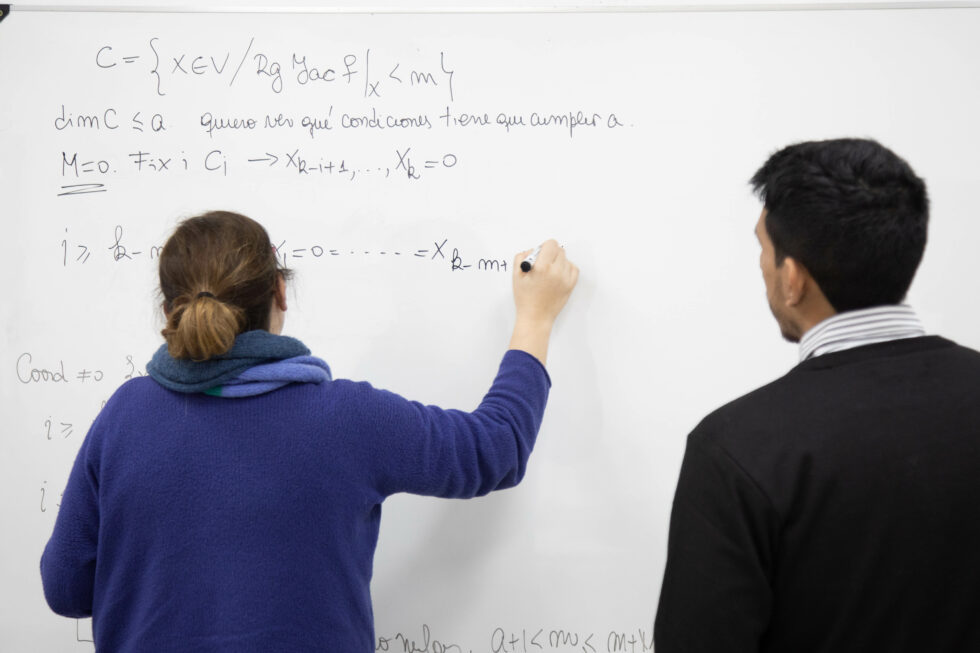 C = { x ∈ V / Rg Jac f |x < m }
dim C ≤ a. quiero ver qué condiciones tiene que cumplir a.
M=0. Fix i Ci → x_{k-i+1}, ..., x_k = 0
i ≥ k-m x_1 = 0 = ...... = x_{k-m+
Coord ≠ 0
i ≥
i
a+1 < m